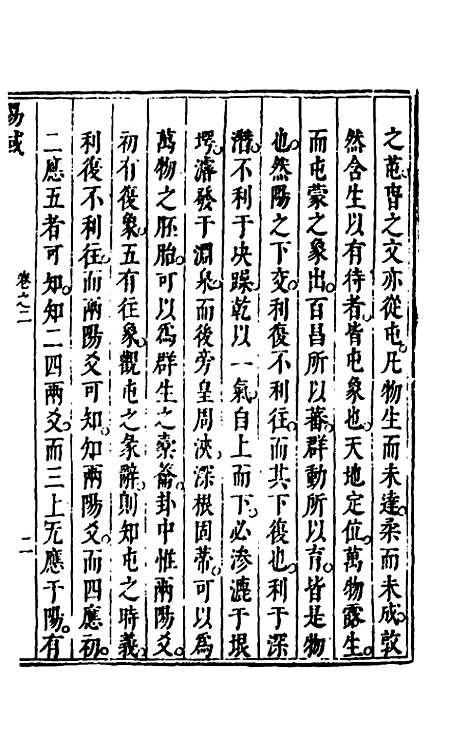 之芚旾之文亦從屯凡物生而未達柔而未成敦
然含生以有待者皆屯象也天地定位萬物露生
而屯蒙之象出百昌所以蕃群動所以育皆是物
也然陽之下交利復不利往而其下復也利于深
潛不利于决躁乾以一氣自上而下必渗漉于垠
堮濬發于淵泉而後旁皇周浹深根固蒂可以為
萬物之胚胎可以爲群生之橐籥卦中惟兩陽爻
初有復象五有往象觀屯之彖辭則知屯之時義
利復不利往而兩陽爻可知知兩陽爻而四應初
二應五者可知知二四兩爻而三上无應于陽有
易或
卷之二
二